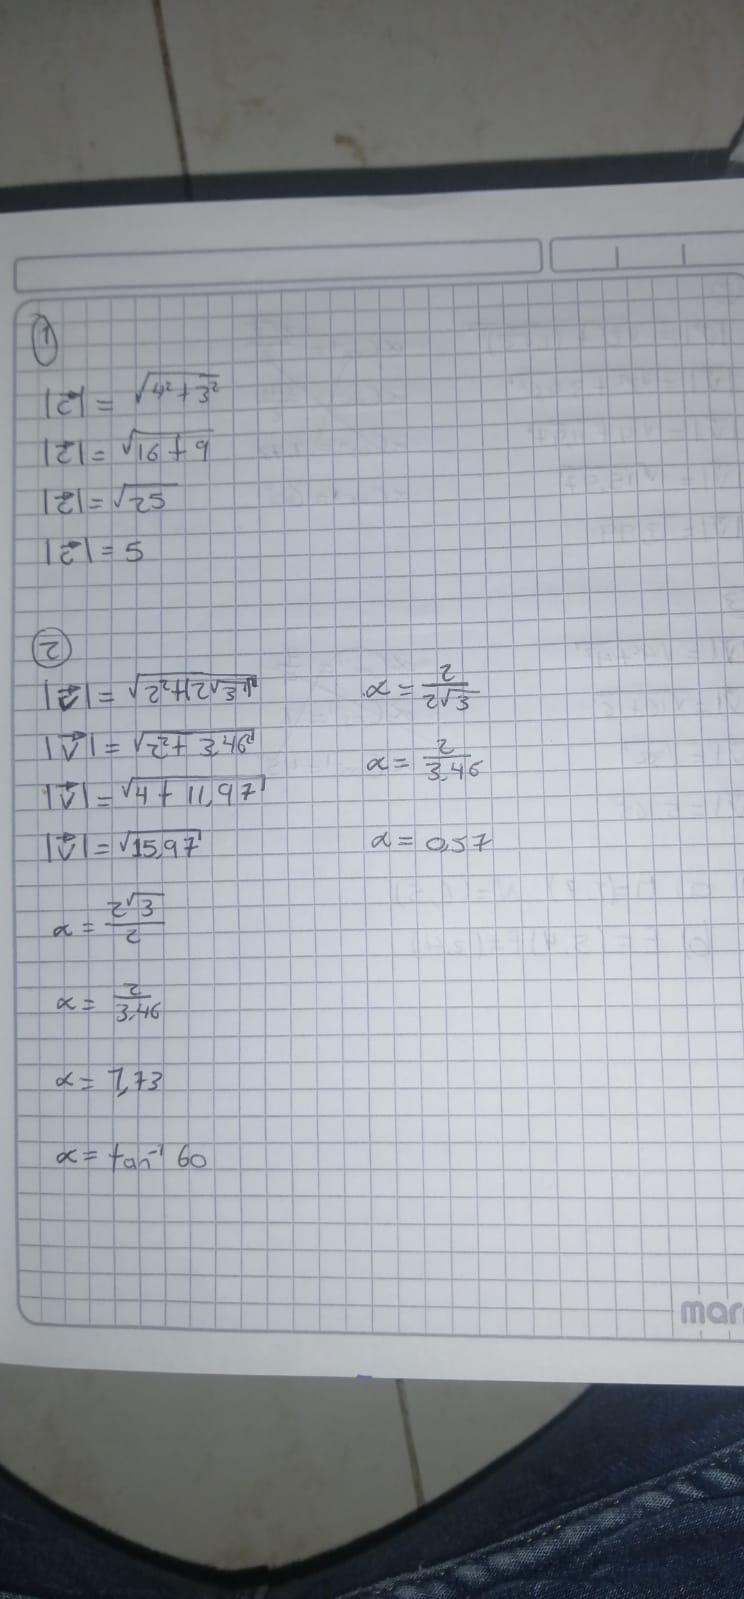 1
|2| = √4²+3²
|2| = √16+9
|2| = √25
|2| = 5
2
|V| = √2²+(2√3)²
|V| = √2²+3,46²
|V| = √4+11,97
|V| = √15,97
α = 2√3/2
α = 2/3,46
α = 1,73
α = tan⁻¹ 60
α = 2/2√3
α = 2/3,46
α = 0,57
mar